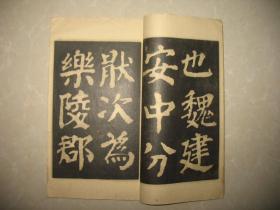 也魏建
安中分
猒次為
樂陵郡